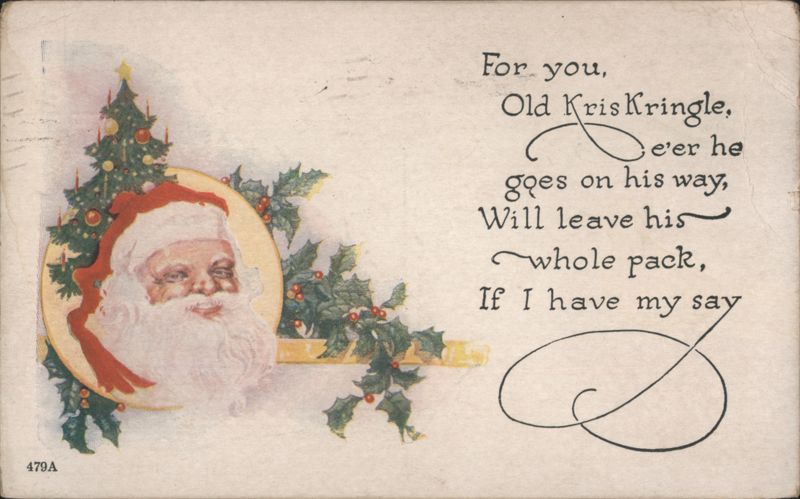 For you,
Old Kris Kringle,
e'er he
goes on his way,
Will leave his
whole pack,
If I have my say
479A